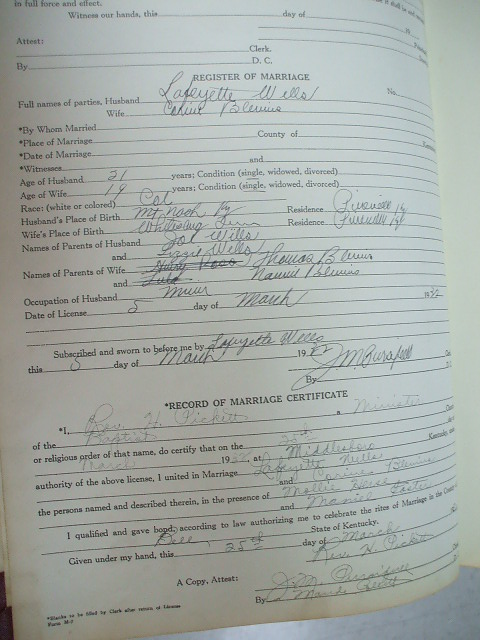 in full force and effect.
Witness our hands, this day of 19
Attest:
Clerk.
By D. C.
REGISTER OF MARRIAGE
Full names of parties, Husband Lafayette Wills No.
Wife Corine Blevins
*By Whom Married
*Place of Marriage County of
*Date of Marriage
*Witnesses and
Age of Husband 21 years; Condition (single, widowed, divorced)
Age of Wife 19 years; Condition (single, widowed, divorced)
Race: (white or colored) Col
Husband's Place of Birth Residence Pineville Ky
Wife's Place of Birth Tenn Residence Pineville Ky
Names of Parents of Husband Wills
and Lizzie Wills
Names of Parents of Wife Thomas Blevins
and Nannie Blevins
Occupation of Husband Miner
Date of License 5 day of March 1932
Subscribed and sworn to before me by Lafayette Wills
this 5 day of March 1932
J M Pursifull
By
*RECORD OF MARRIAGE CERTIFICATE
*I, Rev. H. Pickett a Minister
of the Baptist
or religious order of that name, do certify that on the 25th
March 1932, at Middlesboro Kentucky,
authority of the above license, I united in Marriage Lafayette Wills
and Corine Blevins
the persons named and described therein, in the presence of Mollie
and Foster
I qualified and gave bond, according to law authorizing me to celebrate the rites of Marriage in the County
Bell State of Kentucky.
Given under my hand, this 25th day of March
Rev. H. Pickett
A Copy, Attest:
J. M. Pursifull
By
*Blanks to be filled by Clerk after return of License
Form M-7